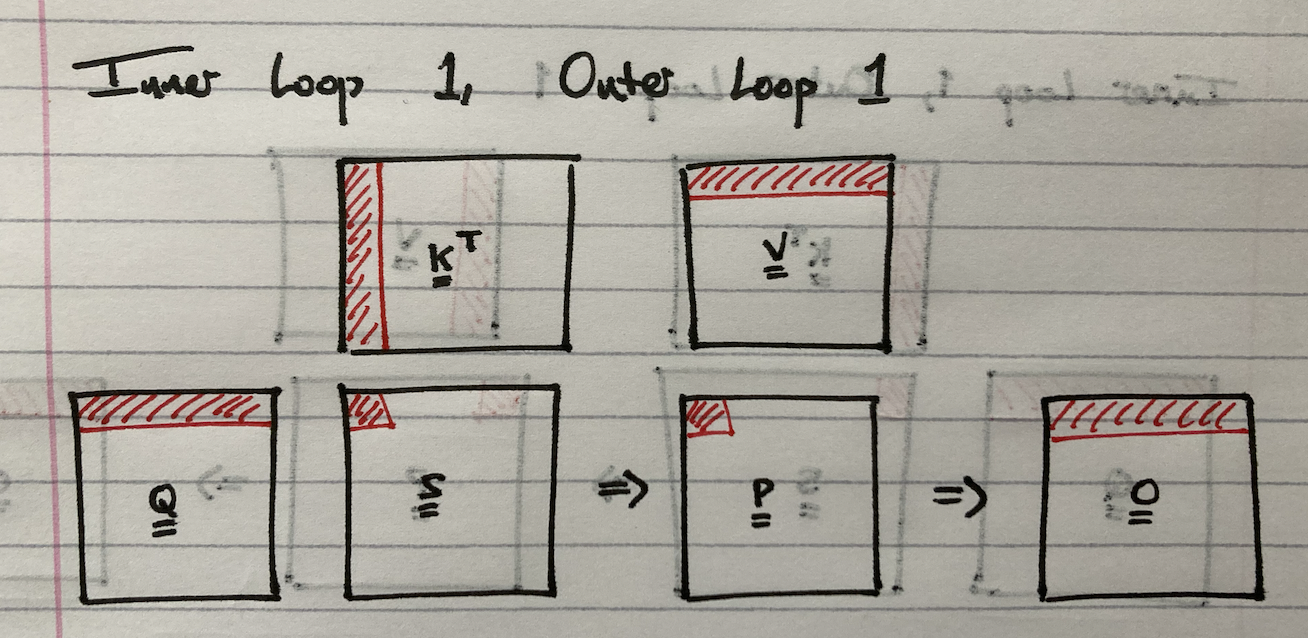 Inner Loop 1, Outer Loop 1
K^T V
Q S ⇒ P ⇒ O